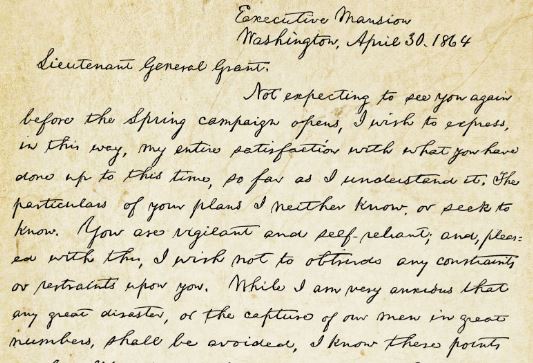 Executive Mansion
Washington, April 30. 1864
Lieutenant General Grant.
Not expecting to see you again
before the Spring campaign opens, I wish to express,
in this way, my entire satisfaction with what you have
done up to this time, so far as I understand it. The
particulars of your plans I neither know, or seek to
know. You are vigilant and self-reliant; and, pleas-
ed with this, I wish not to obtrude any constraints
or restraints upon you. While I am very anxious that
any great disaster, or the capture of our men in great
numbers, shall be avoided, I know these points